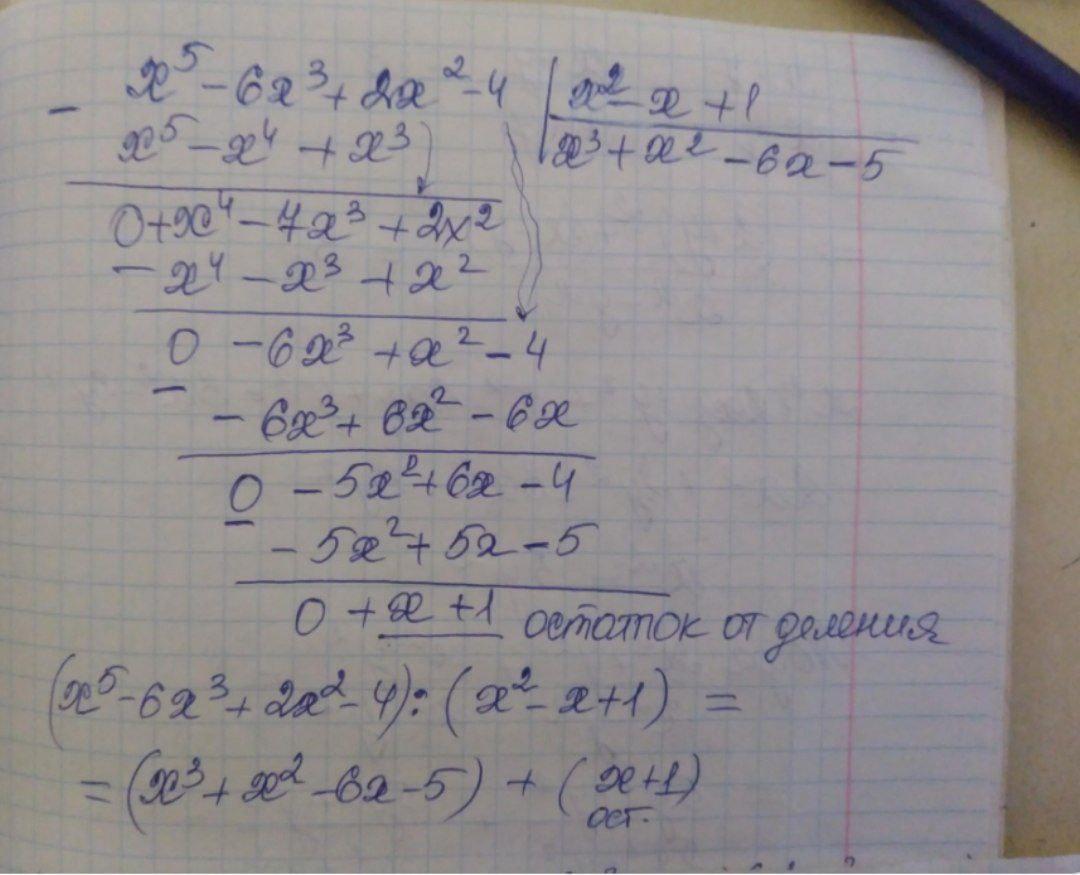 x⁵ - 6x³ + 2x² - 4 | x² - x + 1
- x⁵ - x⁴ + x³ | x³ + x² - 6x - 5
0 + x⁴ - 7x³ + 2x²
- x⁴ - x³ + x²
0 - 6x³ + x² - 4
- - 6x³ + 6x² - 6x
0 - 5x² + 6x - 4
- - 5x² + 5x - 5
0 + x + 1 остаток от деления
(x⁵ - 6x³ + 2x² - 4) : (x² - x + 1) =
= (x³ + x² - 6x - 5) + (x + 1)
ост.